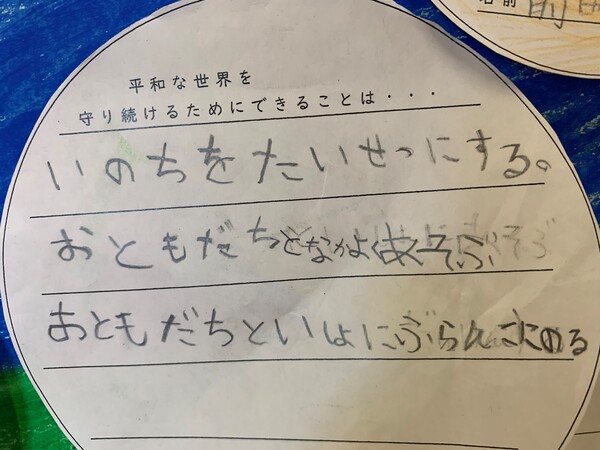 名前
平和な世界を
守り続けるためにできることは・・・
いのちをたいせつにする。
おともだちとなかよくあそぶ
おともだちといしょにぶらんこにのる